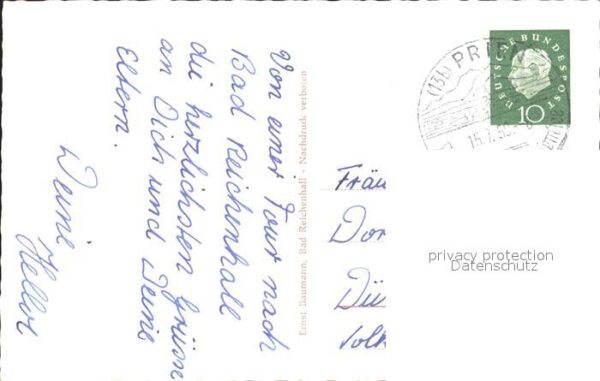 Von einer Tour nach
Bad Reichenhall
die herzlichsten Grüsse
an Dich und Deine
Eltern.
Deine
Ernst Baumann, Bad Reichenhall - Nachdruck verboten
(13b) PRIEN
DEUTSCHE BUNDESPOST
10
Fräu
Dor
Dü
Volk
privacy protection
Datenschutz